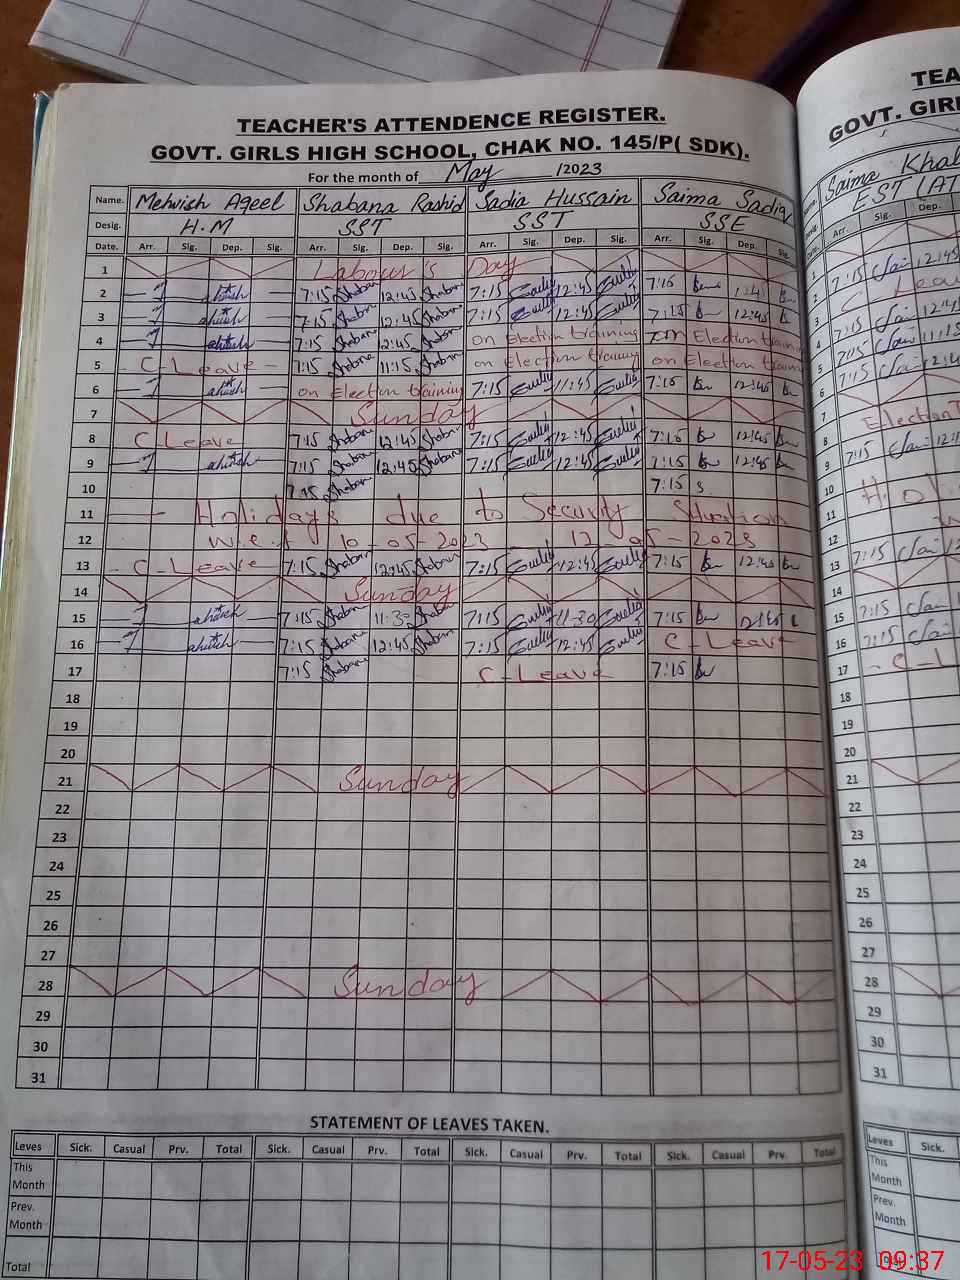 TEACHER'S ATTENDENCE REGISTER.
GOVT. GIRLS HIGH SCHOOL, CHAK NO. 145/P( SDK).
For the month of May /2023
Name. Mehwish Aqeel Shabana Rashid Sadia Hussain Saima Sadiq
Desig. H.M SST SST SSE
Date. Arr. Sig. Dep. Sig. Arr. Sig. Dep. Sig. Arr. Sig. Dep. Sig. Arr. Sig. Dep. Sig.
1 Labour's Day
2 7:15 Shabana 12:45 Shabana 7:15 12:45 7:15 12:45
3 7:15 Shabana 12:45 Shabana 7:15 12:45 7:15 12:45
4 7:15 Shabana 12:45 Shabana on Election training on Election training
5 C-Leave 7:15 Shabana 11:15 Shabana on Election training on Election training
6 on Election training 7:15 11:45 7:15 12:45
7 Sunday
8 C Leave 7:15 Shabana 12:45 Shabana 7:15 12:45 7:15 12:45
9 7:15 Shabana 12:45 Shabana 7:15 12:45 7:15 12:45
10 7:15 Shabana 7:15
11 Holidays due to Security Situation
12 w.e.f 10-05-2023 12-05-2023
13 C-Leave 7:15 Shabana 12:45 Shabana 7:15 12:45 7:15 12:45
14 Sunday
15 7:15 Shabana 11:35 Shabana 7:15 11:30 7:15 12:45
16 7:15 Shabana 12:45 Shabana 7:15 12:45 C-Leave
17 7:15 Shabana C-Leave 7:15
18
19
20
21 Sunday
22
23
24
25
26
27
28 Sunday
29
30
31
STATEMENT OF LEAVES TAKEN.
Leves Sick. Casual Prv. Total Sick. Casual Prv. Total Sick. Casual Prv. Total Sick. Casual Prv. Total
This Month
Prev. Month
Total
TEA
GOVT. GIR
Saima Khal
EST (AT
Arr. Sig. Dep.
1
2 7:15 12:45
3 C-Leav
4 7:15 12:45
5 7:15 11:15
6 7:15 12:4
7
8 Election T
9 7:15 12:1
10
11 Holi
12
13 7:15 12:4
14
15 7:15
16 7:15
17 C-L
18
19
20
21
22
23
24
25
26
27
28
29
30
31
Leves Sick.
This Month
Prev. Month
17-05-23 09:37